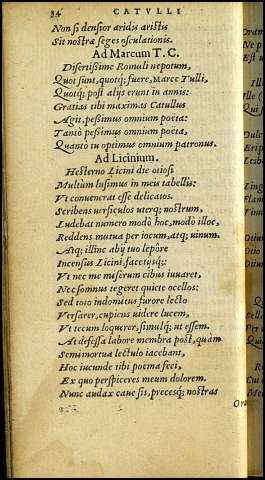 34 CATVLLI
Non si densior aridis aristis
Sit nostræ seges osculationis.
Ad Marcum T. C.
Disertissime Romuli nepotum,
Quot sunt, quotq; fuere, Marce Tulli,
Quotq; post alijs erunt in annis:
Gratias tibi maximas Catullus
Agit, pessimus omnium poëta:
Tantò pessimus omnium poëta,
Quanto tu optimus omnium patronus.
Ad Licinium.
Hesterno Licini die otiosi
Multùm lusimus in meis tabellis:
Vt conuenerat esse delicatos.
Scribens uersiculos uterq; nostrum,
Ludebat numero modò hoc, modò illoc,
Reddens mutua per iocum, atq; uinum.
Atq; illinc abij tuo lepôre
Incensus Licini, facetijsq;:
Vt nec me miserum cibus iuuaret,
Nec somnus tegeret quiete ocellos:
Sed toto indomitus furore lecto
Versarer, cupiens uidere lucem,
Vt tecum loquerer, simulq; ut essem.
At defessa labore membra post, quàm
Semimortua lectulo iacebant,
Hoc iucunde tibi poëma feci,
Ex quo perspiceres meum dolorem.
Nunc audax caue sis, precesq; nostras